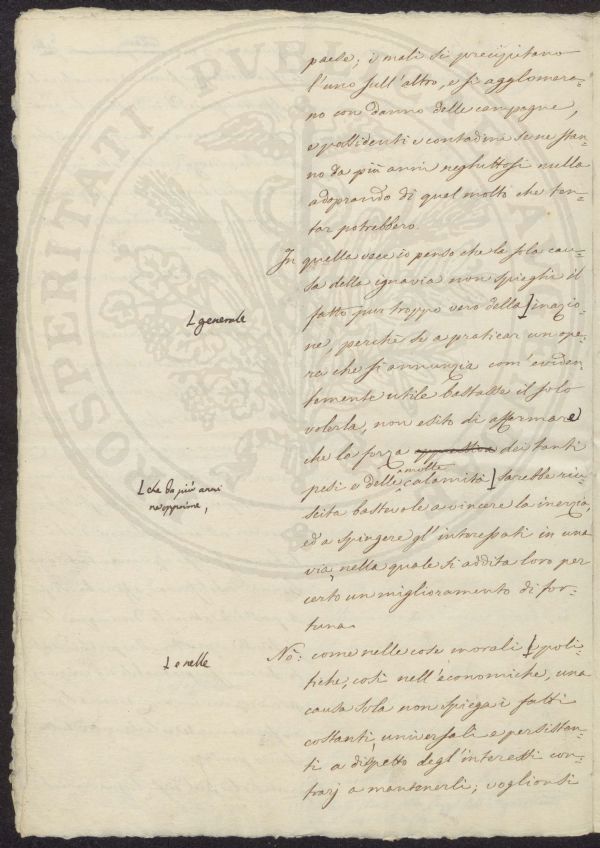 paese; i mali si precipitano
l'uno sull'altro, e si agglomera=
no con danno delle campagne,
e possidenti e contadini se ne stan=
no da più anni neghittosi nulla
adoprando di quel molto che ten=
tar potrebbero.
In quella vece io penso che la sola cau=
sa della ignavia non spieghi il
fatto pur troppo vero della ⌊ inazio=
⌊ generale
ne, perchè se a praticar un ope=
ra che si annunzia com'eviden=
temente utile bastasse il solo
volerla, non esito di affermare
che la forza oppressiva dei tanti
pesi e delle molte calamità ⌊ sarebbe riu=
⌊ che da più anni
ne opprime,
scita bastevole a vincere la inerzia,
ed a spingere gl'interessati in una
via, nella quale si addita loro per
certo un miglioramento di for=
tuna.
No: come nelle cose morali ⌊ poli=
⌊ e nelle
tiche, così nell'economiche, una
causa sola non spiega i fatti
costanti, universali e persisten=
ti a dispetto degl'interessi con=
trarj a mantenerli; voglionsi
PROSPERITATI PVBL